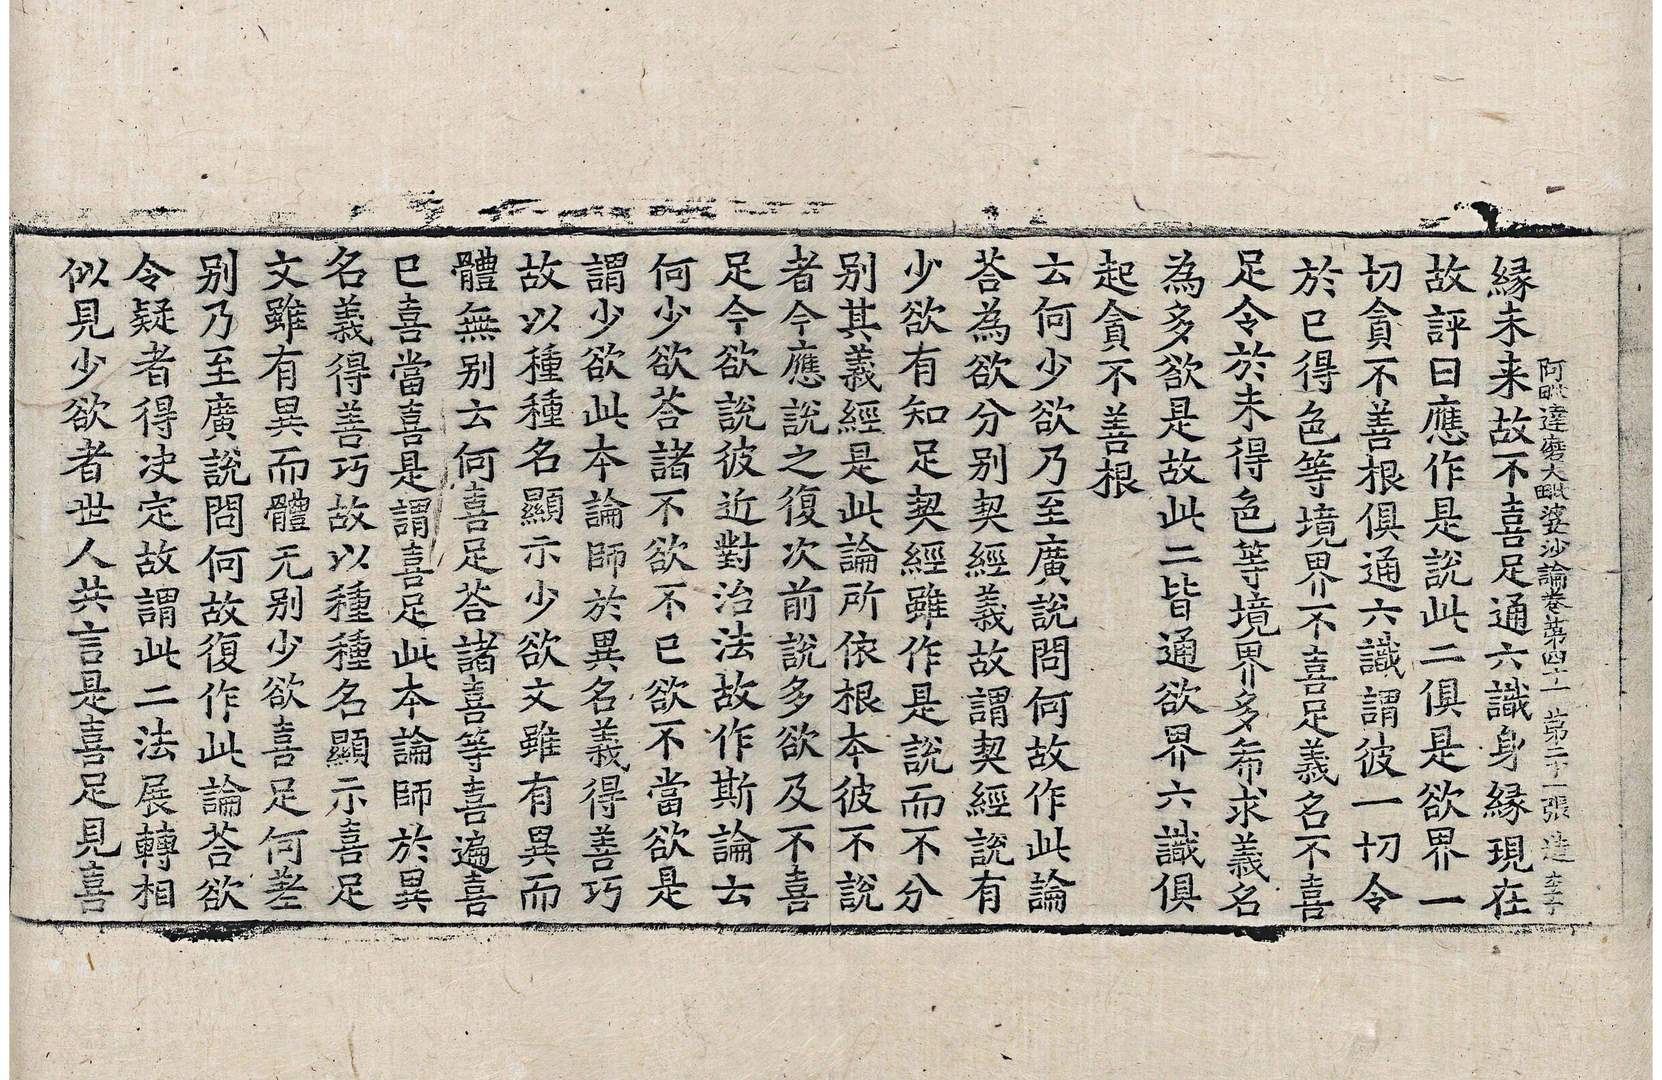 阿毗達磨大毗婆沙論卷第四十一　第二十一張　達　李子
緣未来故不喜足通六識身緣現在
故評曰應作是說此二俱是欲界一
切貪不善根俱通六識謂彼一切令
於已得色等境界不喜足義名不喜
足令於未得色等境界多希求義名
為多欲是故此二皆通欲界六識俱
起貪不善根
云何少欲乃至廣說問何故作此論
荅為欲分別契經義故謂契經說有
少欲有知足契經雖作是說而不分
别其義經是此論所依根本彼不說
者今應說之復次前說多欲及不喜
足今欲說彼近對治法故作斯論云
何少欲荅諸不欲不已欲不當欲是
謂少欲此本論師於異名義得善巧
故以種種名顯示少欲文雖有異而
體無别云何喜足荅諸喜等喜遍喜
已喜當喜是謂喜足此本論師於異
名義得善巧故以種種名顯示喜足
文雖有異而體无别少欲喜足何差
别乃至廣說問何故復作此論荅欲
令疑者得决定故謂此二法展轉相
似見少欲者世人共言是喜足見喜